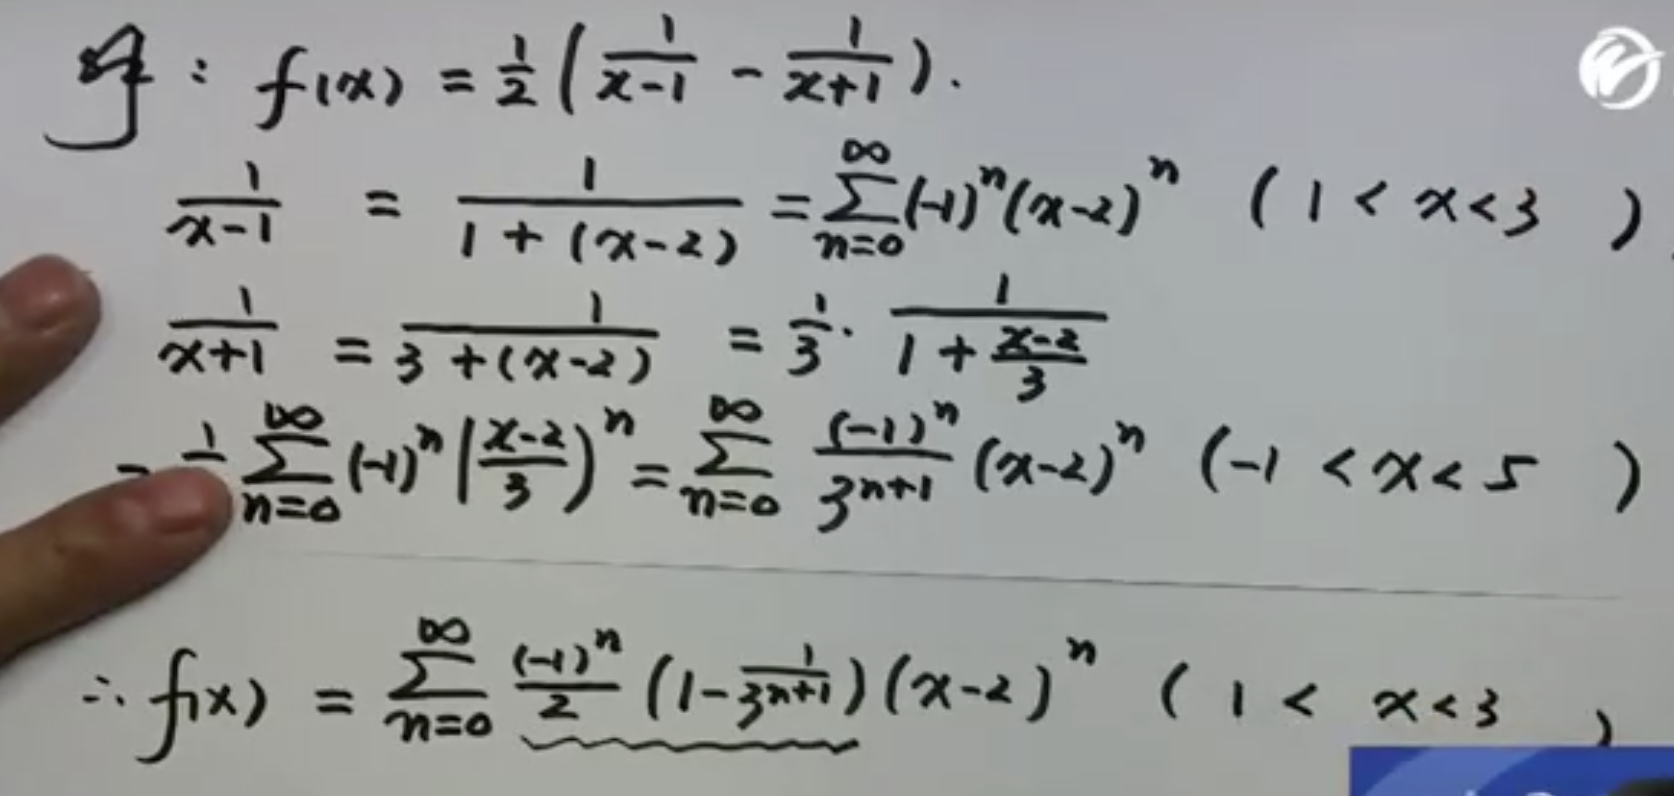 解: f(x) = 1/2 ( 1/(x-1) - 1/(x+1) ).
1/(x-1) = 1/(1+(x-2)) = ∑_{n=0}^{∞} (-1)^n (x-2)^n ( 1 < x < 3 )
1/(x+1) = 1/(3+(x-2)) = 1/3 · 1/(1+(x-2)/3)
= 1/ ∑_{n=0}^{∞} (-1)^n ((x-2)/3)^n = ∑_{n=0}^{∞} (-1)^n/3^{n+1} (x-2)^n ( -1 < x < 5 )
∴ f(x) = ∑_{n=0}^{∞} (-1)^n/2 (1 - 1/3^{n+1}) (x-2)^n ( 1 < x < 3 )